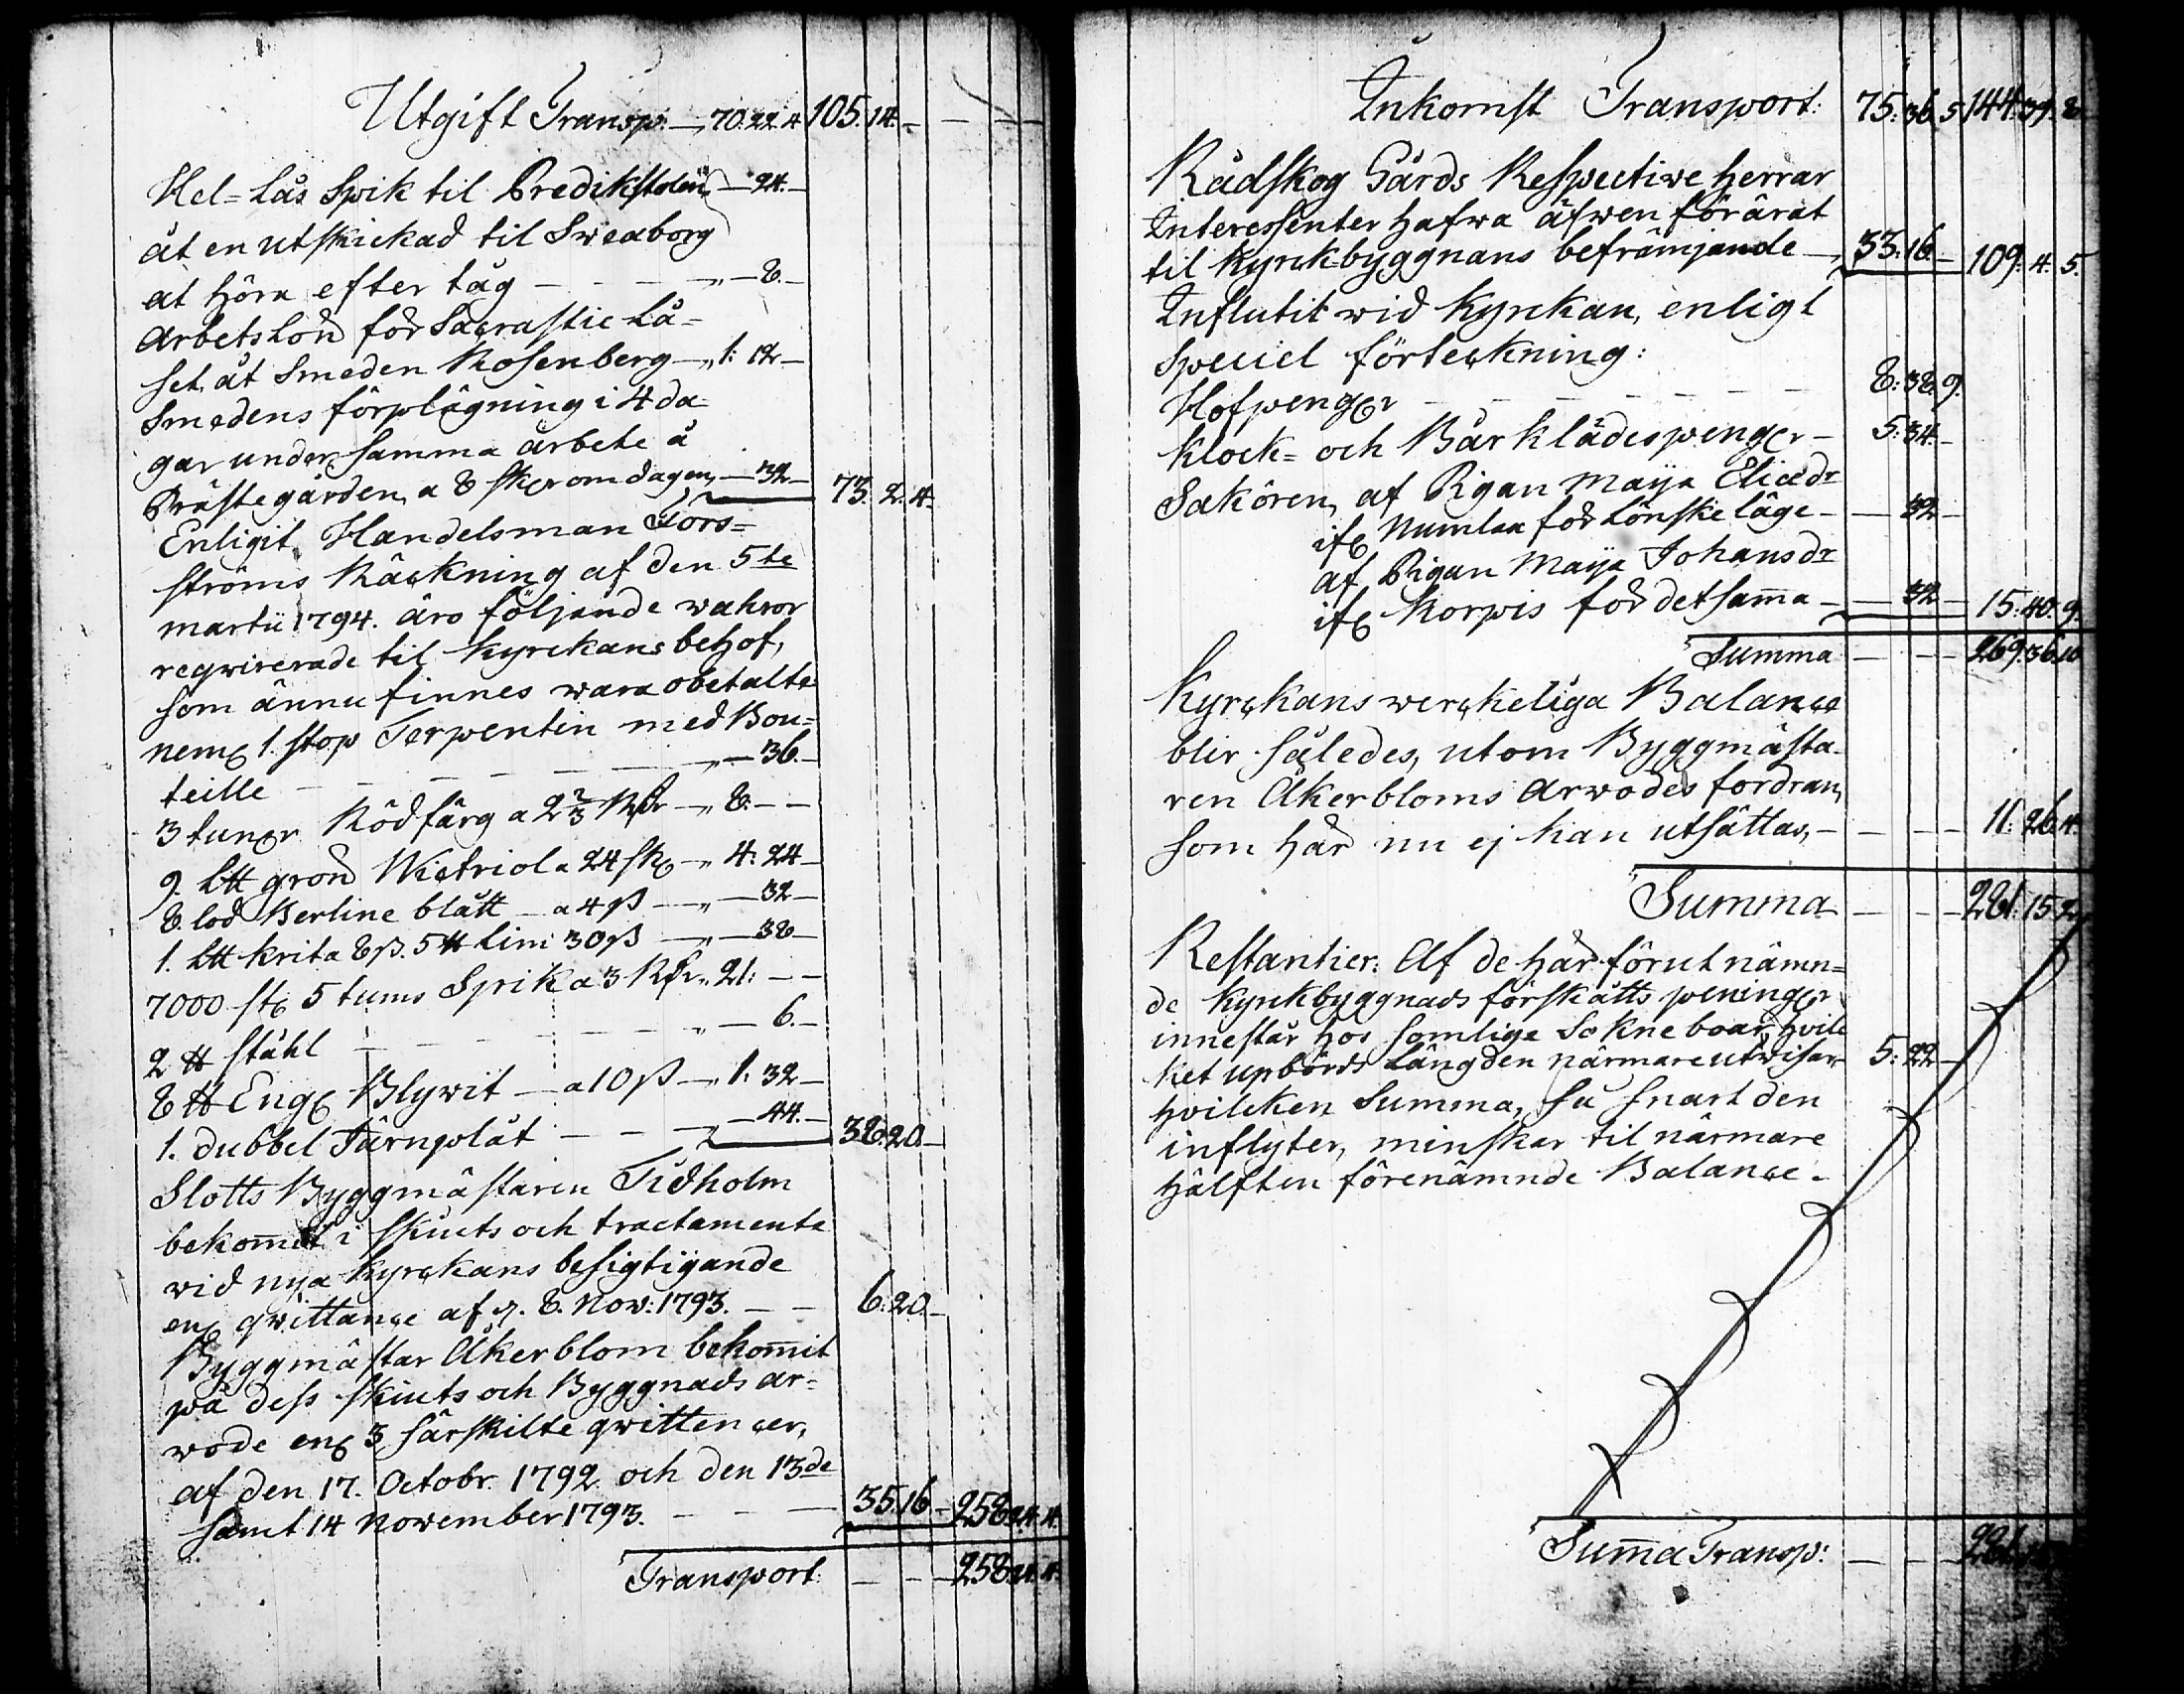 Utgift Transp: — 70. 22. 4 105. 14. —
Hel=Lås Spik til Predikstolen — 24. —
åt en utskickad til Sweaborg
at höra efter tåg — „ — 8. —
Arbetslön för Sacrastie Lå=
set, åt Smeden Rosenberg — „ 1: 12 —
Smedens förplägning i 4 da=
gar under samma arbete å
Prästegården, a 8 sk:r om dagen, — 32 — 73. 2. 4.
Enligit Handelsman Fors=
ströms Räckning af den 5te
martii 1794. äro följande wahror
reqvirerade til Kyrckans behof,
som ännu finnes wara obetalte
neml: 1. stop Terpentin med Bou=
teille — „ — 36. —
3 tuner Rödfärg a 2 2/3 Rdr — „ 8: — —
9. L℔ grön Wictriol a 24 sk: — „ 4: 24 —
8 lod Berline blått — a 4 ß — „ — 32 —
1. L℔ krita 8 ß. 5 ℔ Lim 30 ß — „ — 38 —
7000 st: 5 tums Spik a 3 Rdr. „ 21: — —
2 ℔ ståhl — „ — 6. —
8 ℔ Engl: Blywit — a 10 ß — „ 1: 32 —
1. dubbel Järnplåt — — 44. — 38: 20. —
Slotts Byggmästaren Tidholm
bekommit i skiuts och tractamente
vid nya Kyrckans besigtigande
enl: qvittance af d. 8. Nov: 1793. — — 6: 20. —
Byggmästar Åkerblom bekommit
på dess skiuts och Byggnads ar=
wode enl: 3 särskilte qvittencer,
af den 17. Octobr. 1792 och den 13de
samt 14 November 1793. — — 35. 16. — 258. 24. 4.
Transport: — — — 258. 24. 4.
Inkomst Transport: 75: 36. 5 144: 39. 8.
Rådskog Gårds Respective Herrar
Interessenter hafwa äfwen förärat
til Kyrckbyggnans befrämjande — 33: 16. — 109: 4. 5.
Influtit wid Kyrckan, enligt
speciel förteckning:
Hofpenger — — — 8: 38. 9.
Klock= och Bårklädespenger — 5: 34. —
Sakören, af Pigan Maija Eliædr
ifr: Numlax för Lönskeläge — — 32 —
af Pigan Maija Johansdr
ifr: Korpis för det samma — — 32 — 15: 40: 9.
Summa — — — 269: 36. 10
Kyrckans werckeliga Balance
blir således, utom Byggmästa=
ren Åkerbloms Arwodes fordran,
som här nu ej kan utsättas, — — — — 11: 26. 4.
Summa — — — 281: 15. 2.
Restantier: Af de här förut nämn=
de Kyrckbyggnads förskåtts peninger
innestår hos somlige Sokneboar, hvil=
ket upbörds Längden närmare utwisar 5: 22 —
hvilcken Summa, så snart den
inflyter, minskar til närmare
hälften förenämnde Balance.
Summa Transp: — — — 281